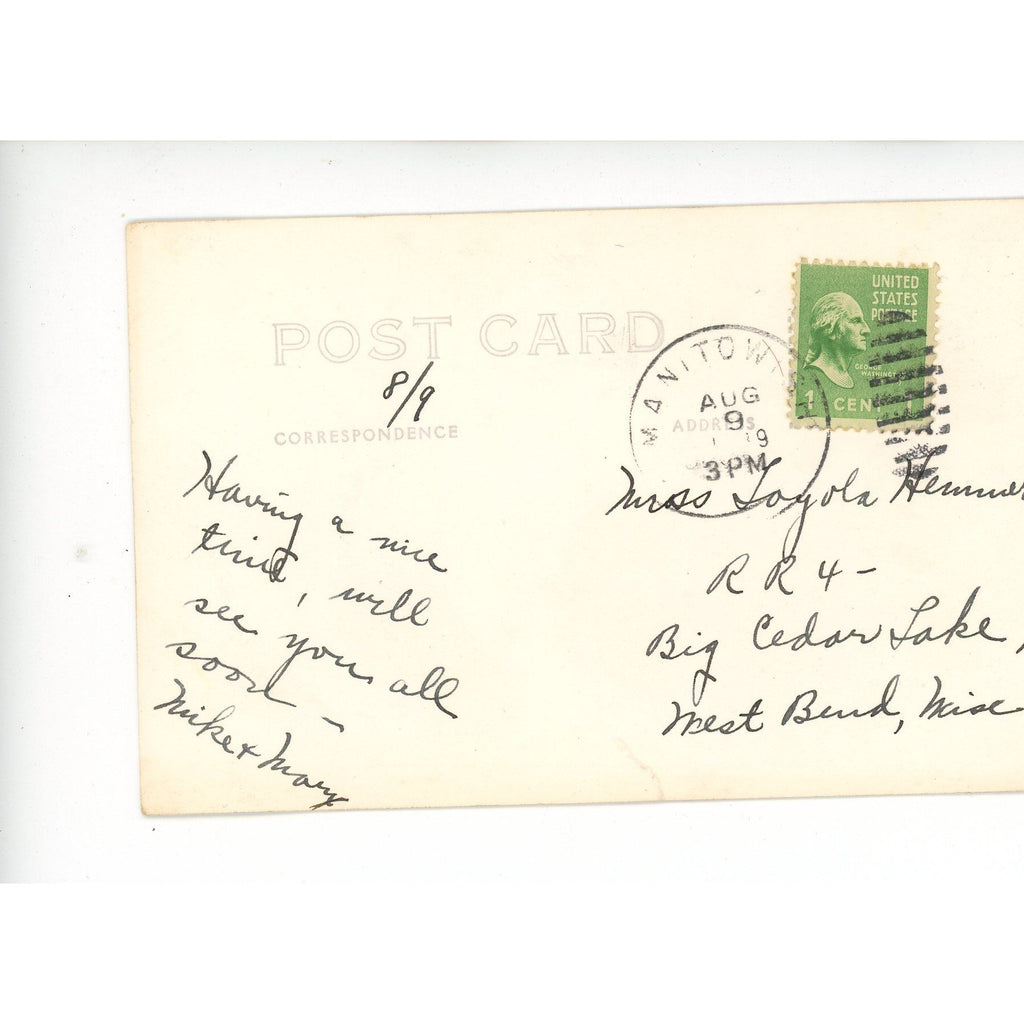 POST CARD
8/9
CORRESPONDENCE
Having a nice
time, will
see you all
soon –
Mike & Mary
UNITED
STATES
POSTAGE
GEORGE
WASHINGTON
1 CENT 1
MANITOW
AUG
9
3 PM
ADDRESS
Miss Loyola
R R 4 –
Big Cedar Lake,
West Bend, Wisc